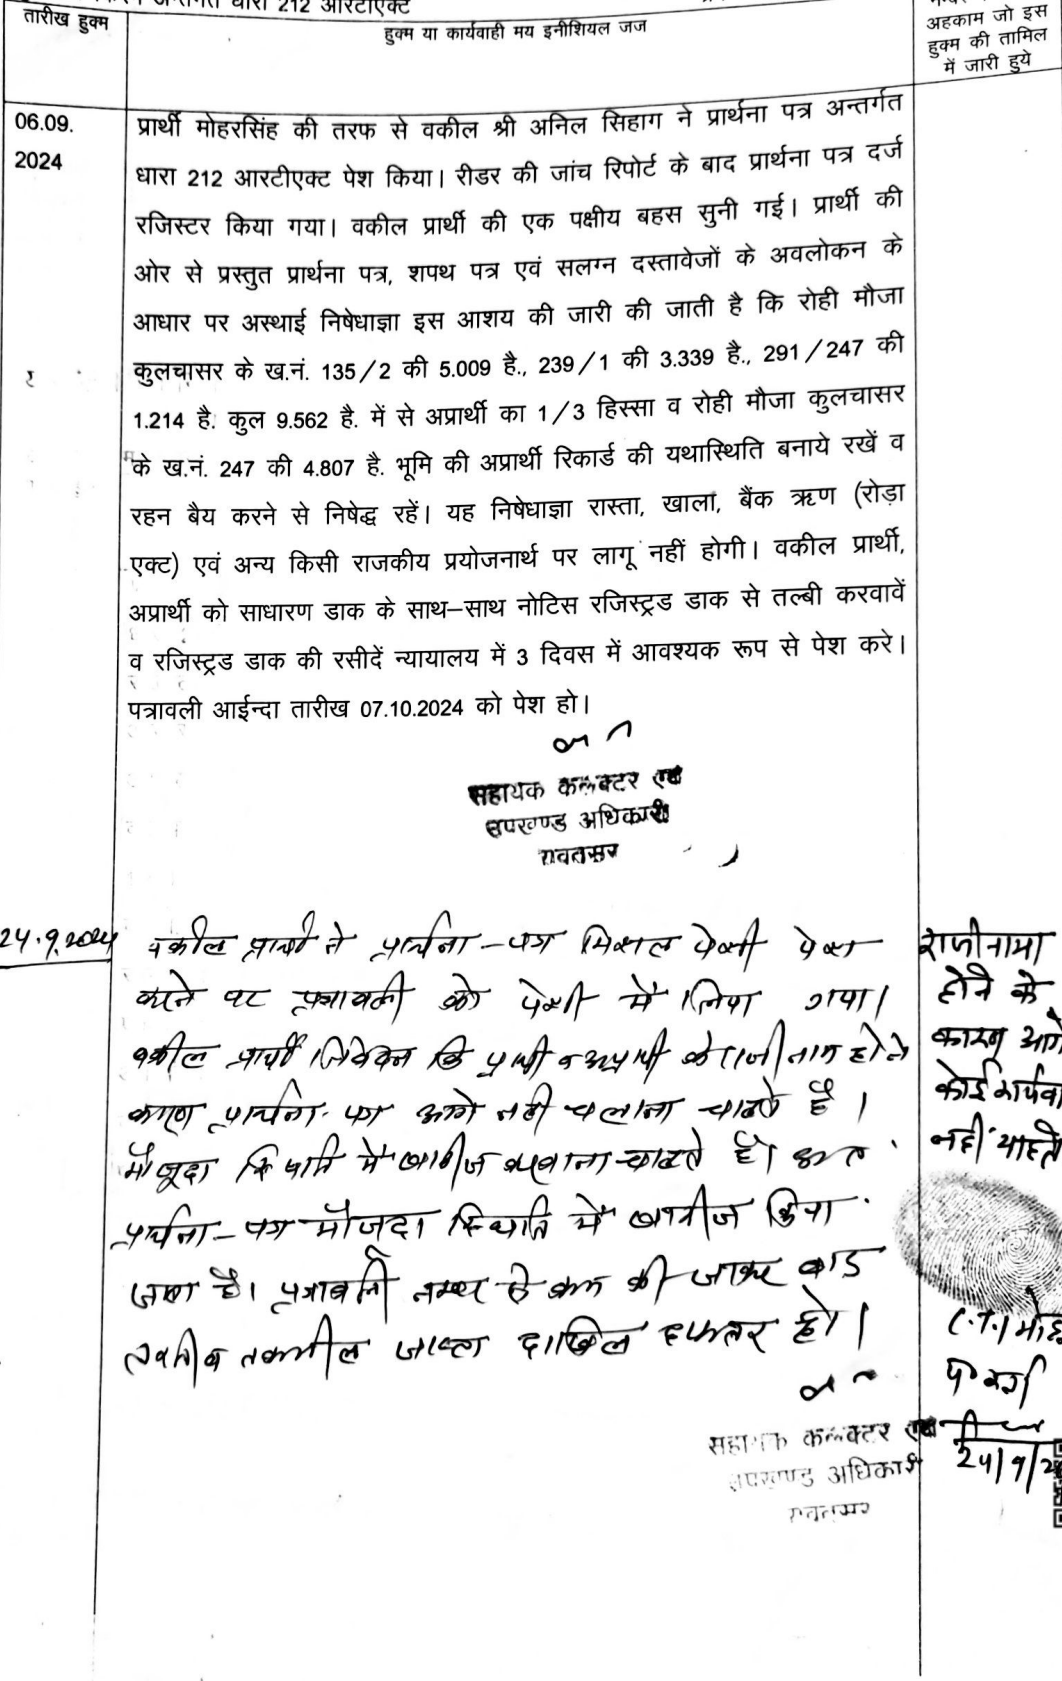 अन्तर्गत धारा 212 आरटीएक्ट
तारीख हुक्म
हुक्म या कार्यवाही मय इनीशियल जज
अहकाम जो इस
हुक्म की तामिल
में जारी हुये
06.09.
2024
प्रार्थी मोहरसिंह की तरफ से वकील श्री अनिल सिहाग ने प्रार्थना पत्र अन्तर्गत
धारा 212 आरटीएक्ट पेश किया। रीडर की जांच रिपोर्ट के बाद प्रार्थना पत्र दर्ज
रजिस्टर किया गया। वकील प्रार्थी की एक पक्षीय बहस सुनी गई। प्रार्थी की
ओर से प्रस्तुत प्रार्थना पत्र, शपथ पत्र एवं सलग्न दस्तावेजों के अवलोकन के
आधार पर अस्थाई निषेधाज्ञा इस आशय की जारी की जाती है कि रोही मौजा
कुलचासर के ख.नं. 135/2 की 5.009 है., 239/1 की 3.339 है., 291/247 की
1.214 है. कुल 9.562 है. में से अप्रार्थी का 1/3 हिस्सा व रोही मौजा कुलचासर
के ख.नं. 247 की 4.807 है. भूमि की अप्रार्थी रिकार्ड की यथास्थिति बनाये रखें व
रहन बैय करने से निषेद्ध रहें। यह निषेधाज्ञा रास्ता, खाला, बैंक ऋण (रोड़ा
एक्ट) एवं अन्य किसी राजकीय प्रयोजनार्थ पर लागू नहीं होगी। वकील प्रार्थी,
अप्रार्थी को साधारण डाक के साथ–साथ नोटिस रजिस्ट्रड डाक से तल्बी करवावें
व रजिस्ट्रड डाक की रसीदें न्यायालय में 3 दिवस में आवश्यक रूप से पेश करे।
पत्रावली आईन्दा तारीख 07.10.2024 को पेश हो।
सहायक कलक्टर एवं
उपखण्ड अधिकारी
रावतसर
24.9.2024
वकील प्रार्थी ने प्रार्थना-पत्र मिसल पेशी पेश
करने पर पत्रावली को पेशी में लिया गया।
वकील प्रार्थी निवेदन कि प्रार्थी व अप्रार्थी के राजीनामा होने
कारण प्रार्थना-पत्र आगे नहीं चलाना चाहते है।
मौजूदा स्थिति में खारीज करवाना चाहते है। अतः
प्रार्थना-पत्र मौजूदा स्थिति में खारीज किया
जाता है। पत्रावली नम्बर से कम की जाकर बाद
तकमील जाब्ता दाखिल दफ्तर हो।
सहायक कलक्टर एवं
उपखण्ड अधिकारी
रावतसर
राजीनामा
होने के
कारण आगे
कोई कार्यवा
नहीं चाहते
24/9/2